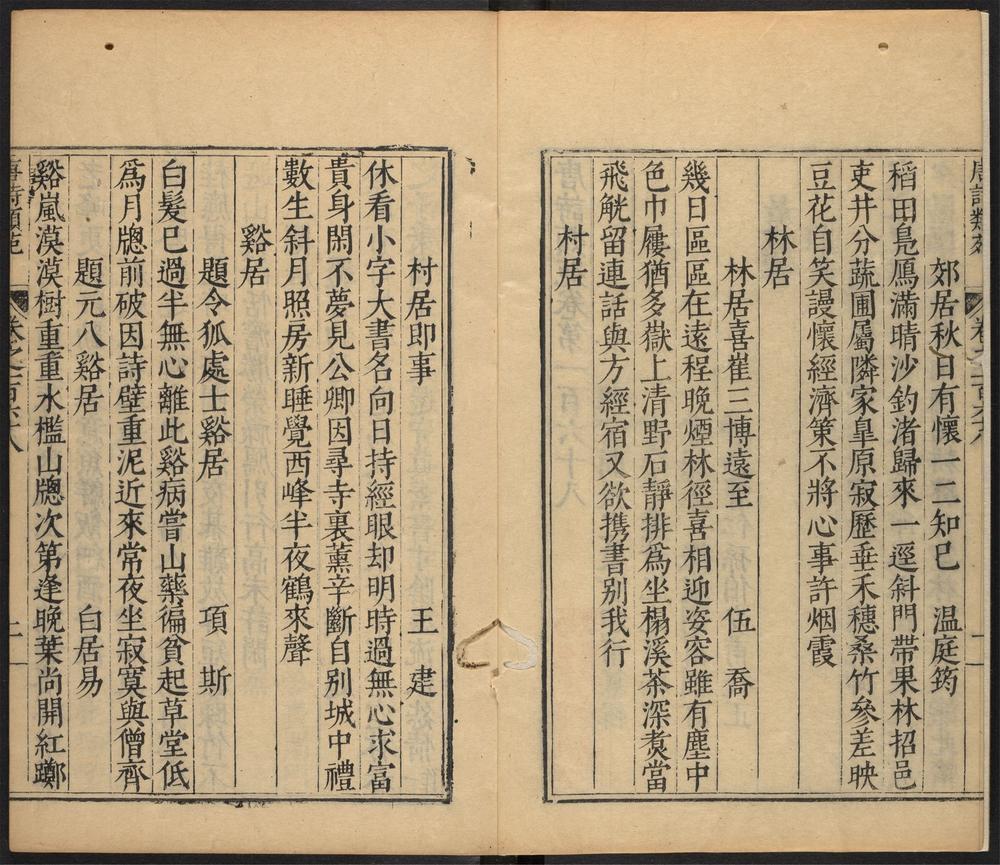 唐詩類苑 卷之一百六十八
郊居秋日有懷一二知已 溫庭筠
稻田凫鴈滿晴沙釣渚歸來一逕斜門帶果林招邑
吏井分蔬圃屬隣家皐原寂歷垂禾穗桑竹參差映
豆花自笑謾懷經濟策不將心事許烟霞
林居
林居喜崔三博遠至 伍 喬
幾日區區在遠程晚煙林徑喜相迎姿容雖有塵中
色巾屨猶多嶽上清野石靜排爲坐榻溪茶深煑當
飛觥留連話與方經宿又欲携書别我行
村居
村居即事 王 建
休看小字大書名向日持經眼却明時過無心求富
貴身閑不夢見公卿因尋寺裏薰辛斷自别城中禮
數生斜月照房新睡覺西峰半夜鶴來聲
谿居
題令狐處士谿居 項 斯
白髮已過半無心離此谿病嘗山藥徧貧起草堂低
爲月牕前破因詩壁重泥近來常夜坐寂寞與僧齊
題元八谿居 白居易
谿嵐漠漠樹重重水檻山牕次第逢晚葉尚開紅躑
唐詩類苑 卷之一百六十八 二